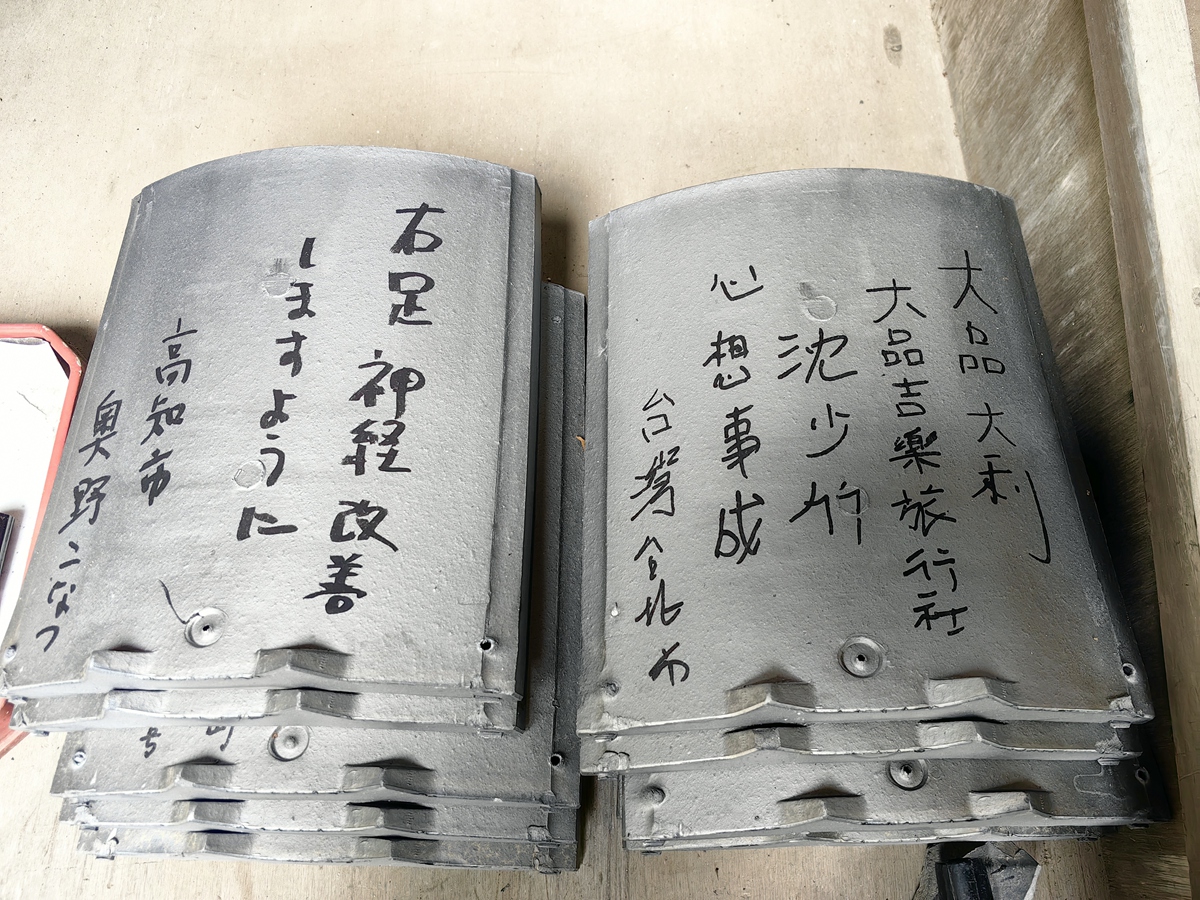 右足 神経 改善
しますように
高知市
奥野 こなつ
大品 大利
大品吉樂旅行社
沈少竹
心想事成
台灣台北市